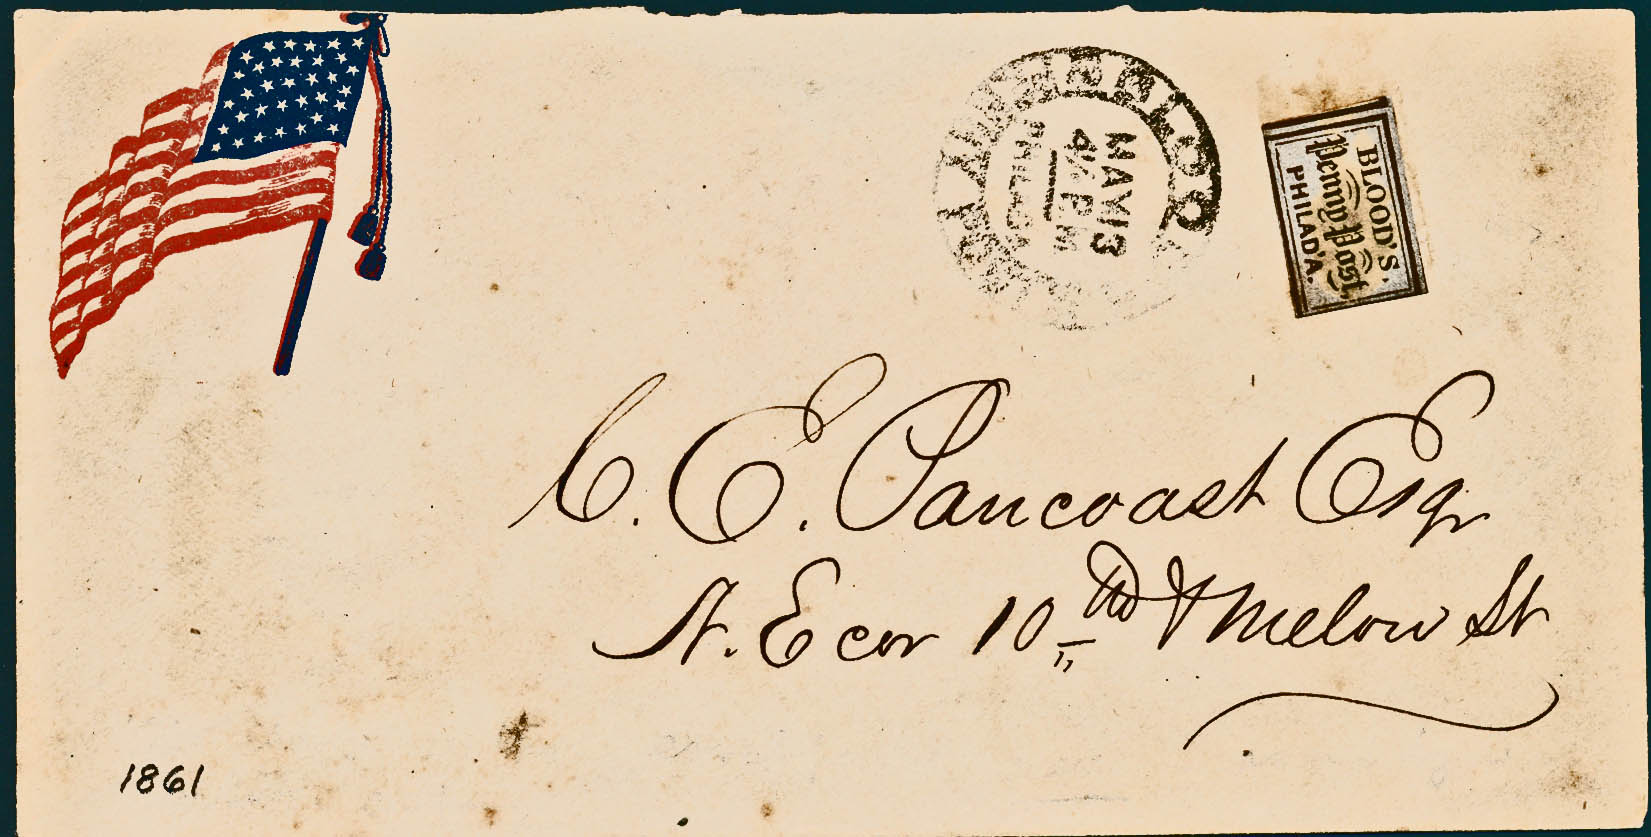 BLOOD'S
Penny Post,
PHILAD'A.
MAY 13
4½ PM
PHILADA
C. E. Pancoast Esqr
N. E cor 10th & Melon St
1861